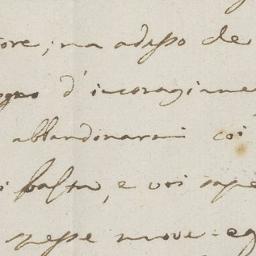 ore; ma adesso che
ogno d'incoragime
abbandonarmi coi
i basta, e voi sape
spesse nuove. eg